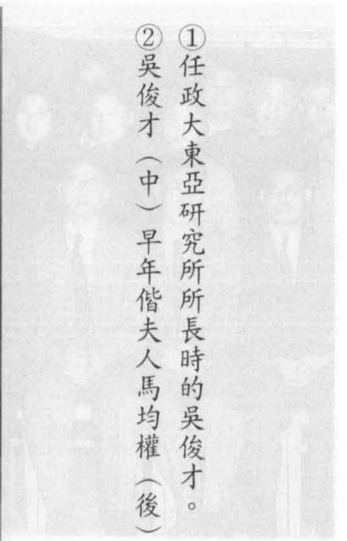 ①任政大東亞研究所所長時的吳俊才。
②吳俊才（中）早年偕夫人馬均權（後）